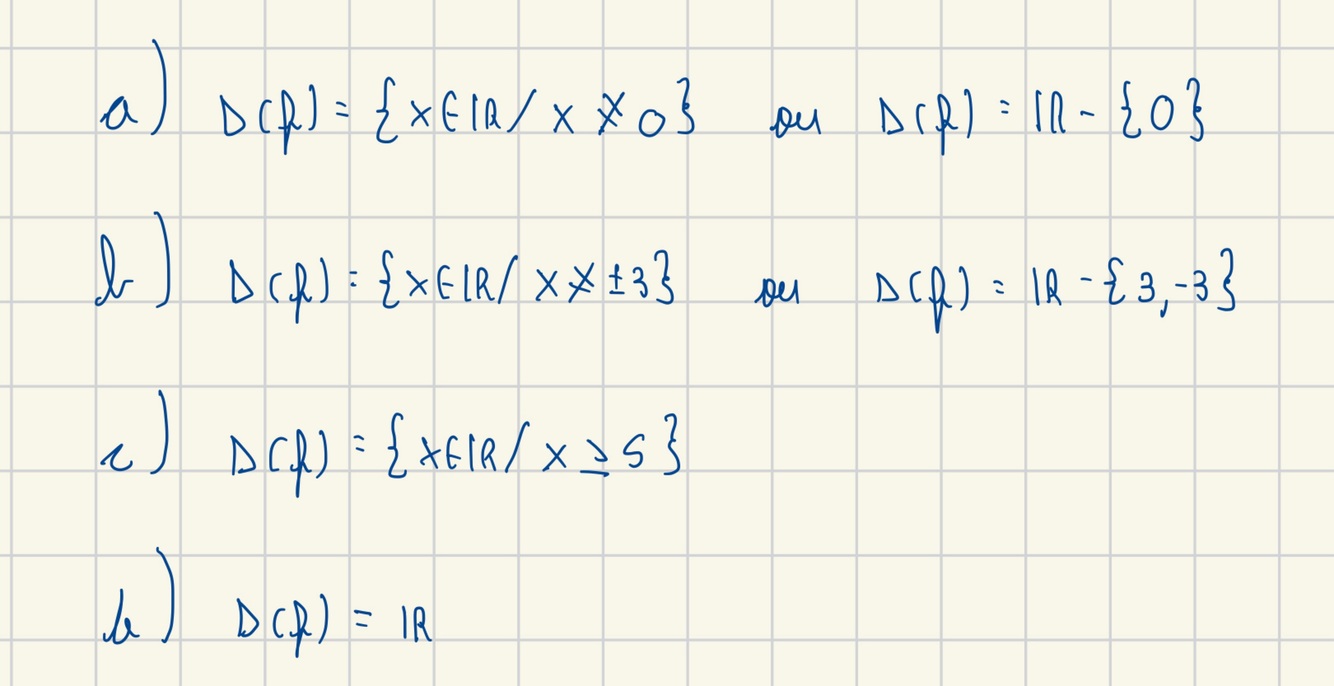 a) D(f) = {x∈IR/ x ≠ 0} ou D(f) = IR - {0}
b) D(f) = {x∈IR/ x ≠ ±3} ou D(f) = IR - {3,-3}
c) D(f) = {x∈IR/ x ≥ 5}
b) D(f) = IR